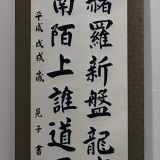 羅新盤龍
南陌上誰道
平成戊戌歳 見子書